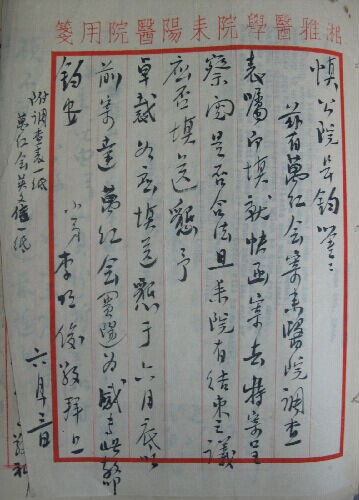 湘雅醫學院耒陽醫院用箋
慎公院長鈞鑒：
茲有萬紅会寄耒醫院調查
表囑即填就快函寄去特寄呈
察閱是否合法且耒院有結束之議
应否填送懇予
卓裁如应填送懇于六月底以
前寄達萬紅会貴陽为感專此敬請
鈞安
李 俊敬拜上
六月三日
附調查表一紙
萬紅会英文信一紙